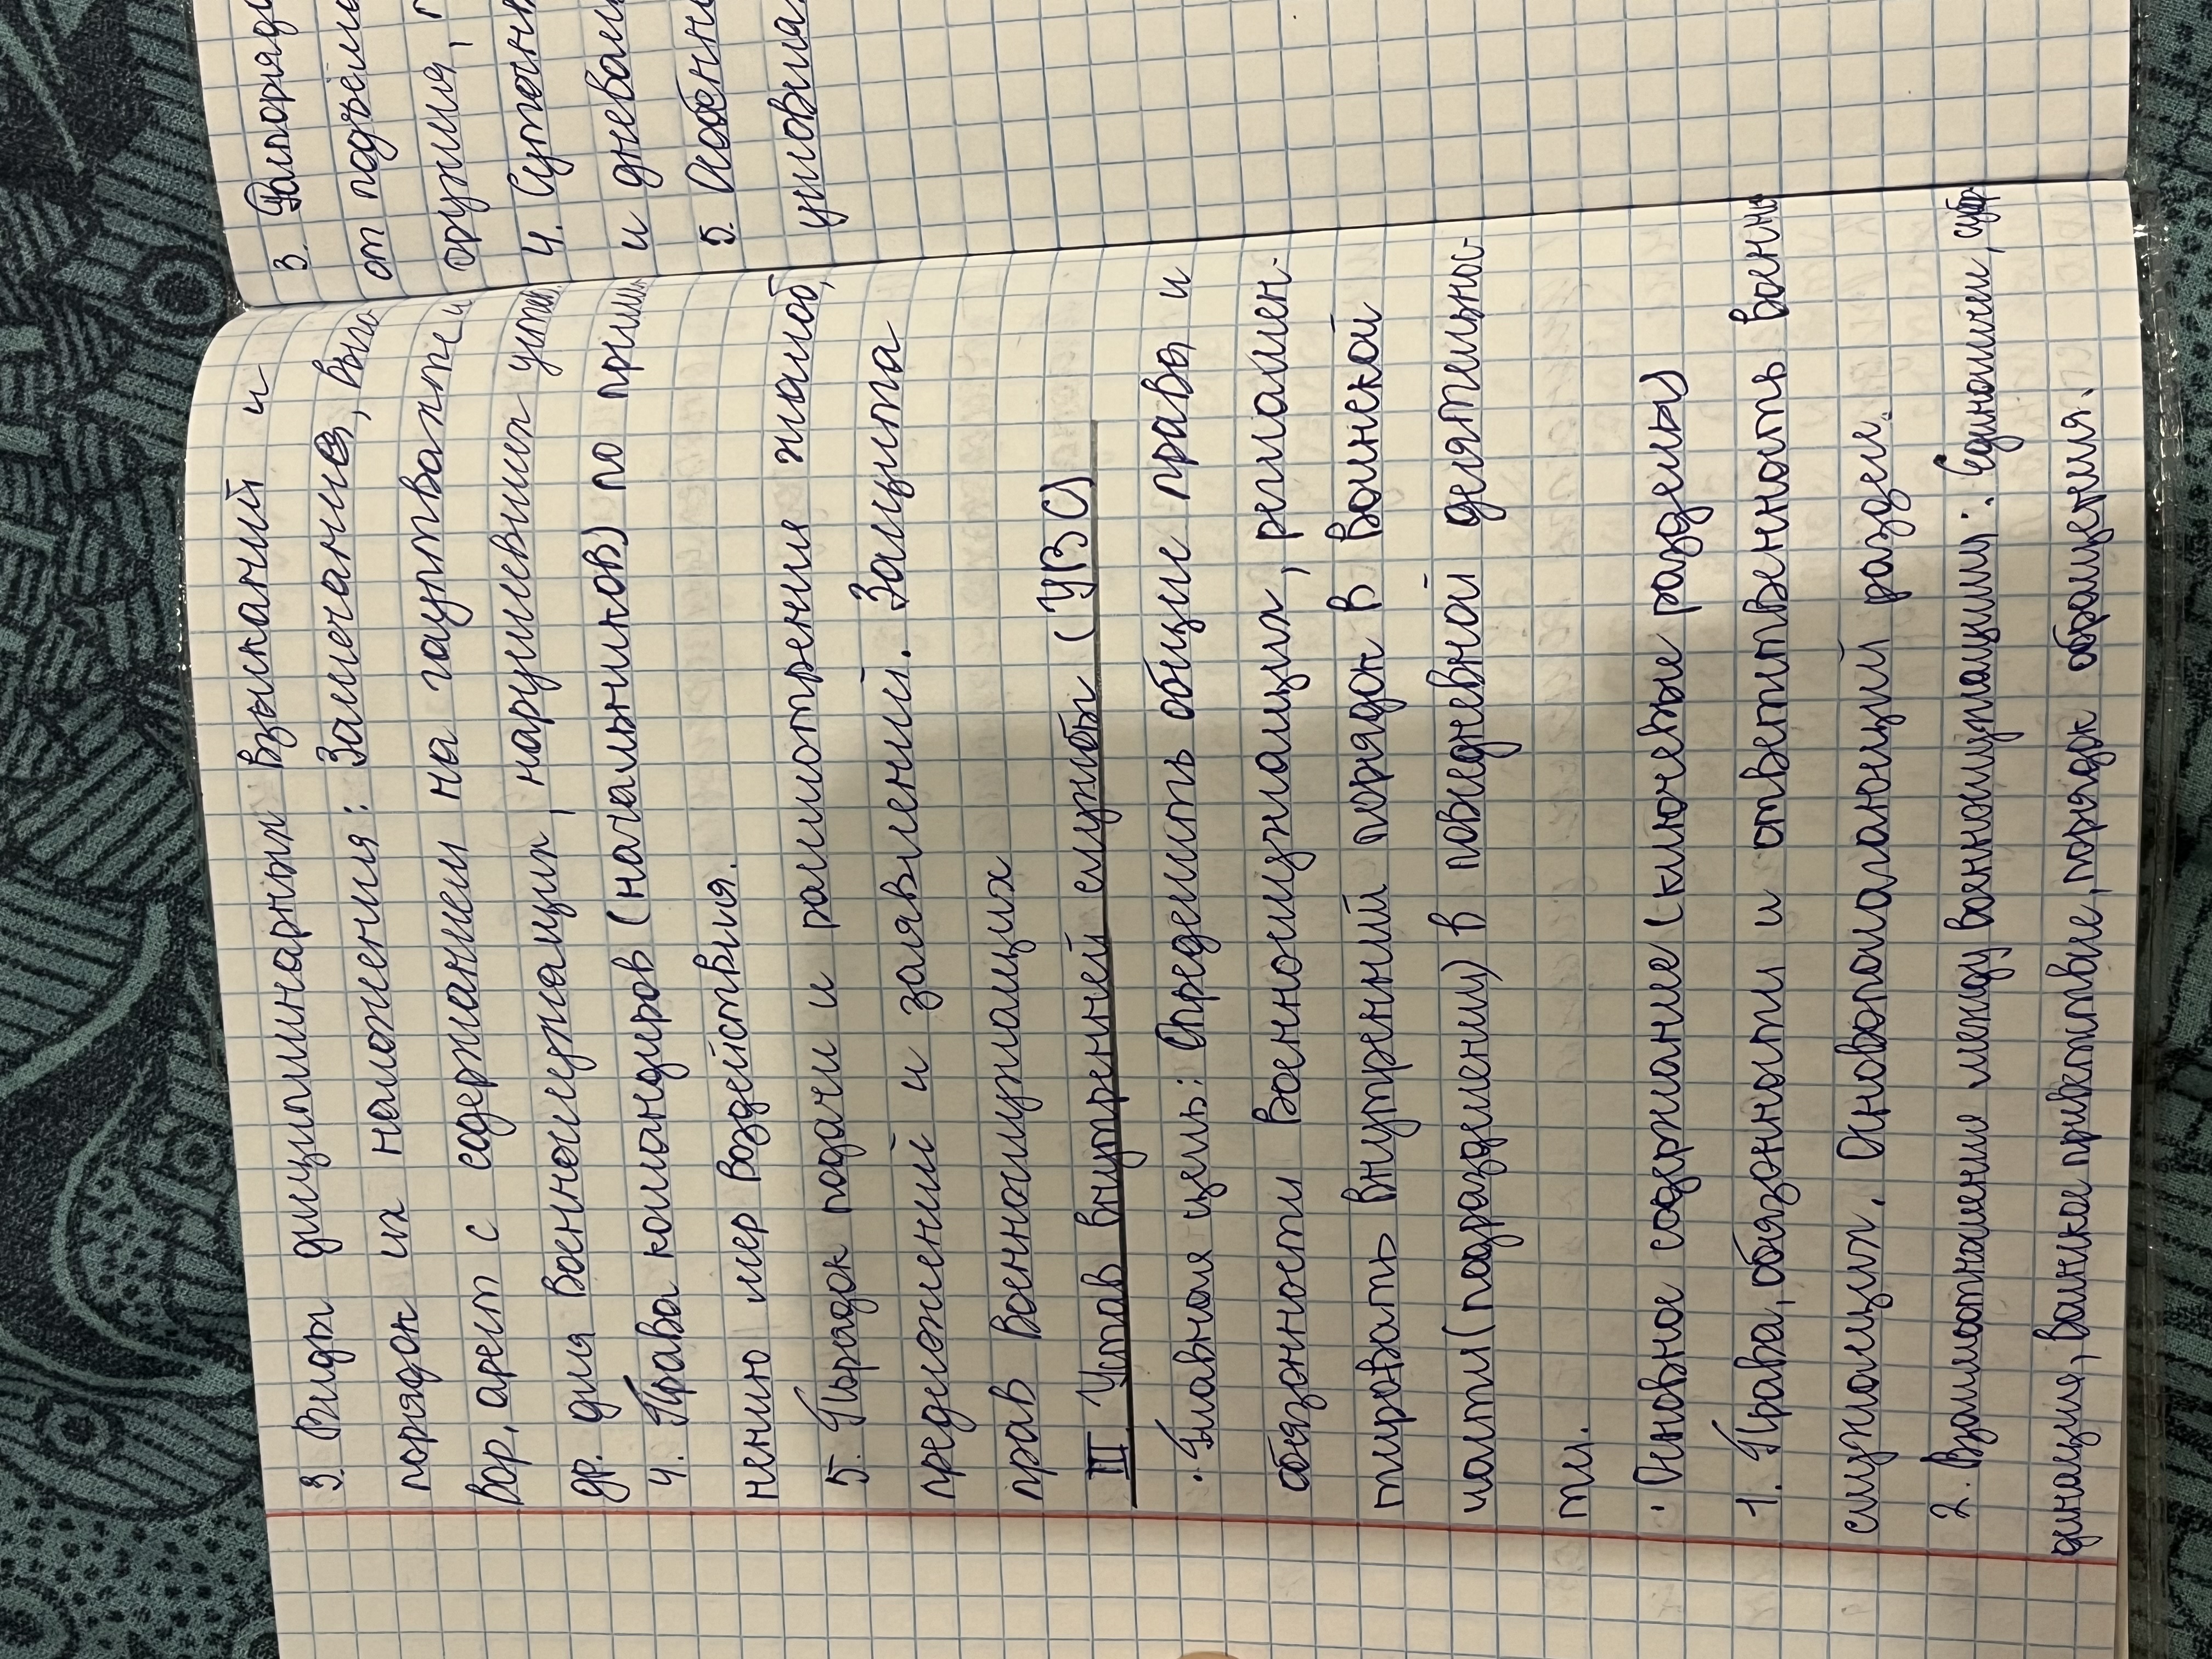 3. Виды дисциплинарных взысканий и
порядок их наложения: Замечание, выго
вор, арест с содержанием на гауптвахте и
др. для военнослужащих, нарушевших устав
4. Права командиров (начальников) по приме
нению мер воздействия.
5. Порядок подачи и рассмотрения жалоб,
предложений и заявлений. Защита
прав военнослужащих
III Устав внутренней службы (УВС)
· Главная цель: Определить общие правы и
обязанности военнослужащих, регламен-
тировать внутрений порядок в воинской
части (подразделении) в повседневной деятельнос-
ти.
· Основное содержание (ключевые разделы)
1. Права, обязанности и ответственность военно
служащих. Основополагающий раздел.
2. Взаимоотношение между военнослужащими: Единоначалие,
динация, воинское приветствие, порядок обращения.
3. Распоряд
от подъёма
оружия,
4. Суточн
и дневальн
5. Особенн
условиях.